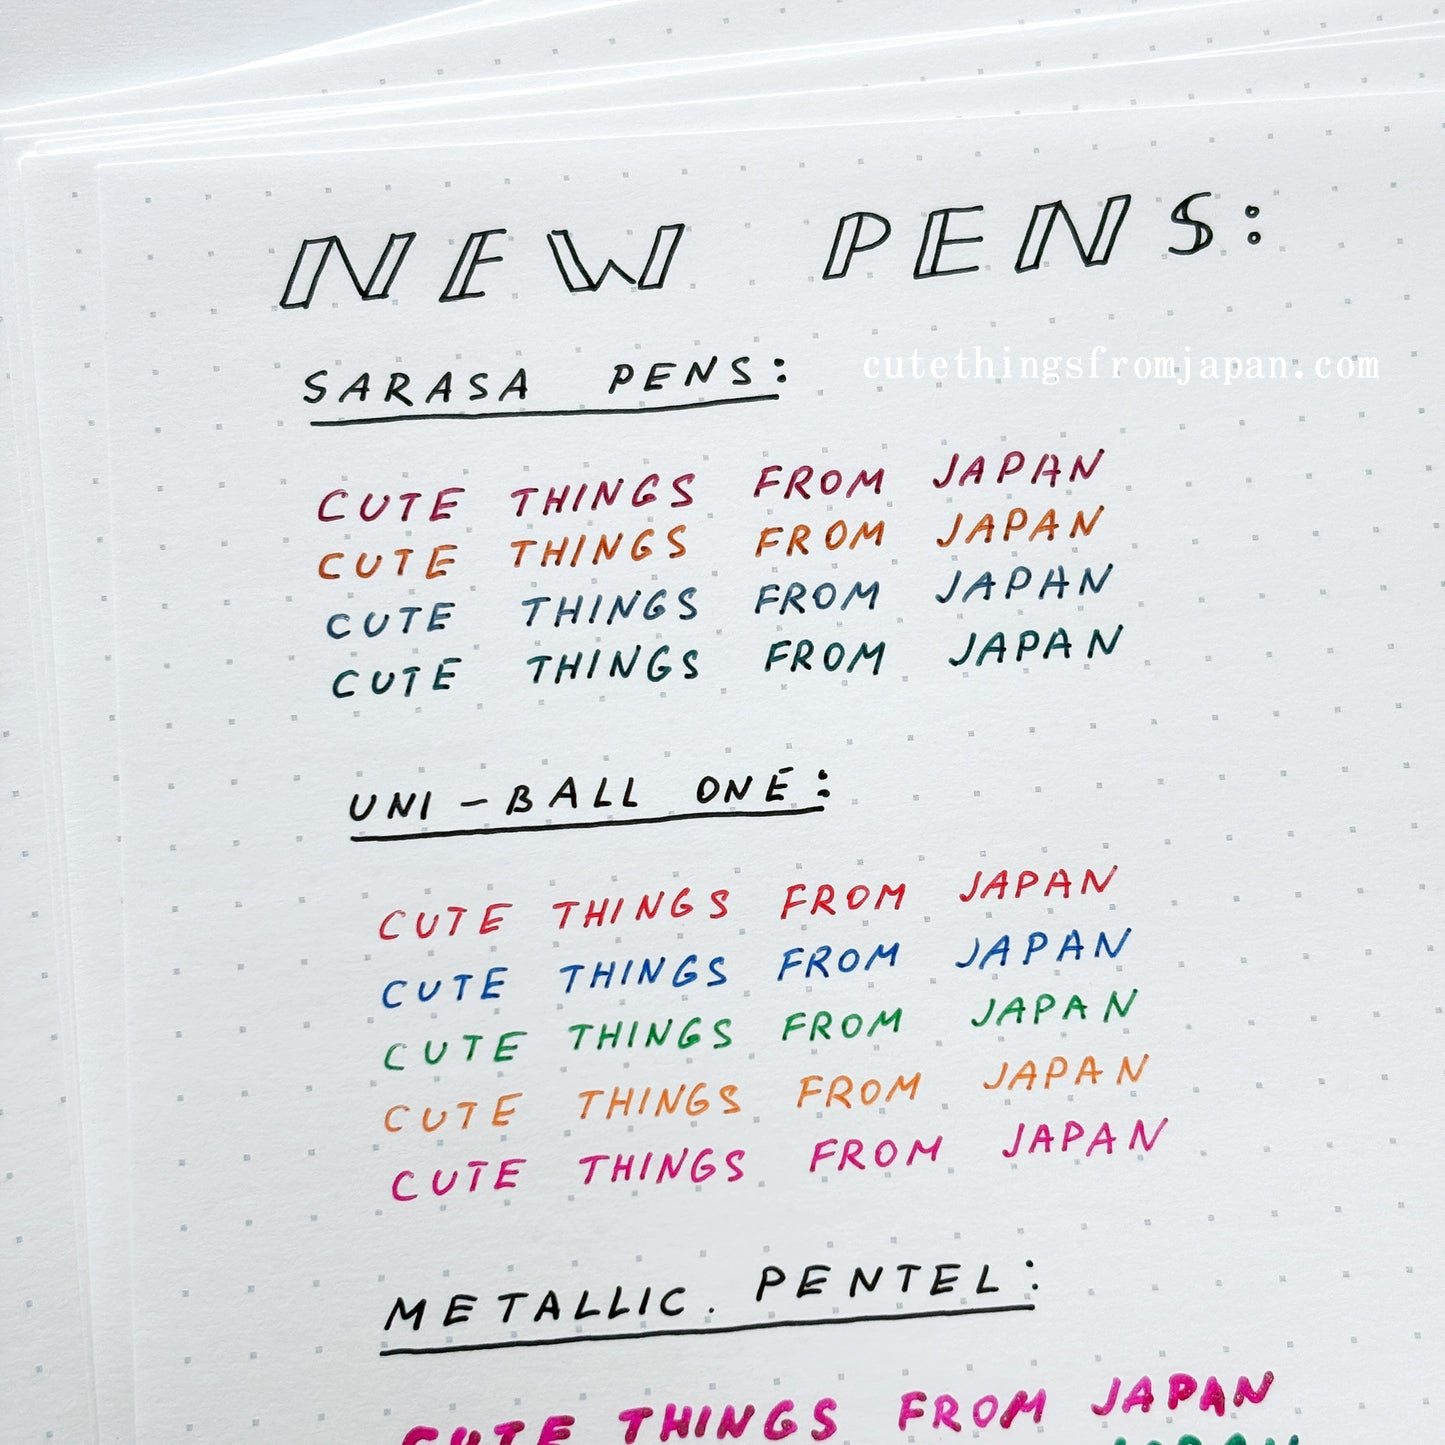 NEW PENS:
SARASA PENS:
cutethingsfromjapan.com
CUTE THINGS FROM JAPAN
CUTE THINGS FROM JAPAN
CUTE THINGS FROM JAPAN
CUTE THINGS FROM JAPAN
UNI-BALL ONE:
CUTE THINGS FROM JAPAN
CUTE THINGS FROM JAPAN
CUTE THINGS FROM JAPAN
CUTE THINGS FROM JAPAN
CUTE THINGS FROM JAPAN
METALLIC. PENTEL:
CUTE THINGS FROM JAPAN
JAPAN